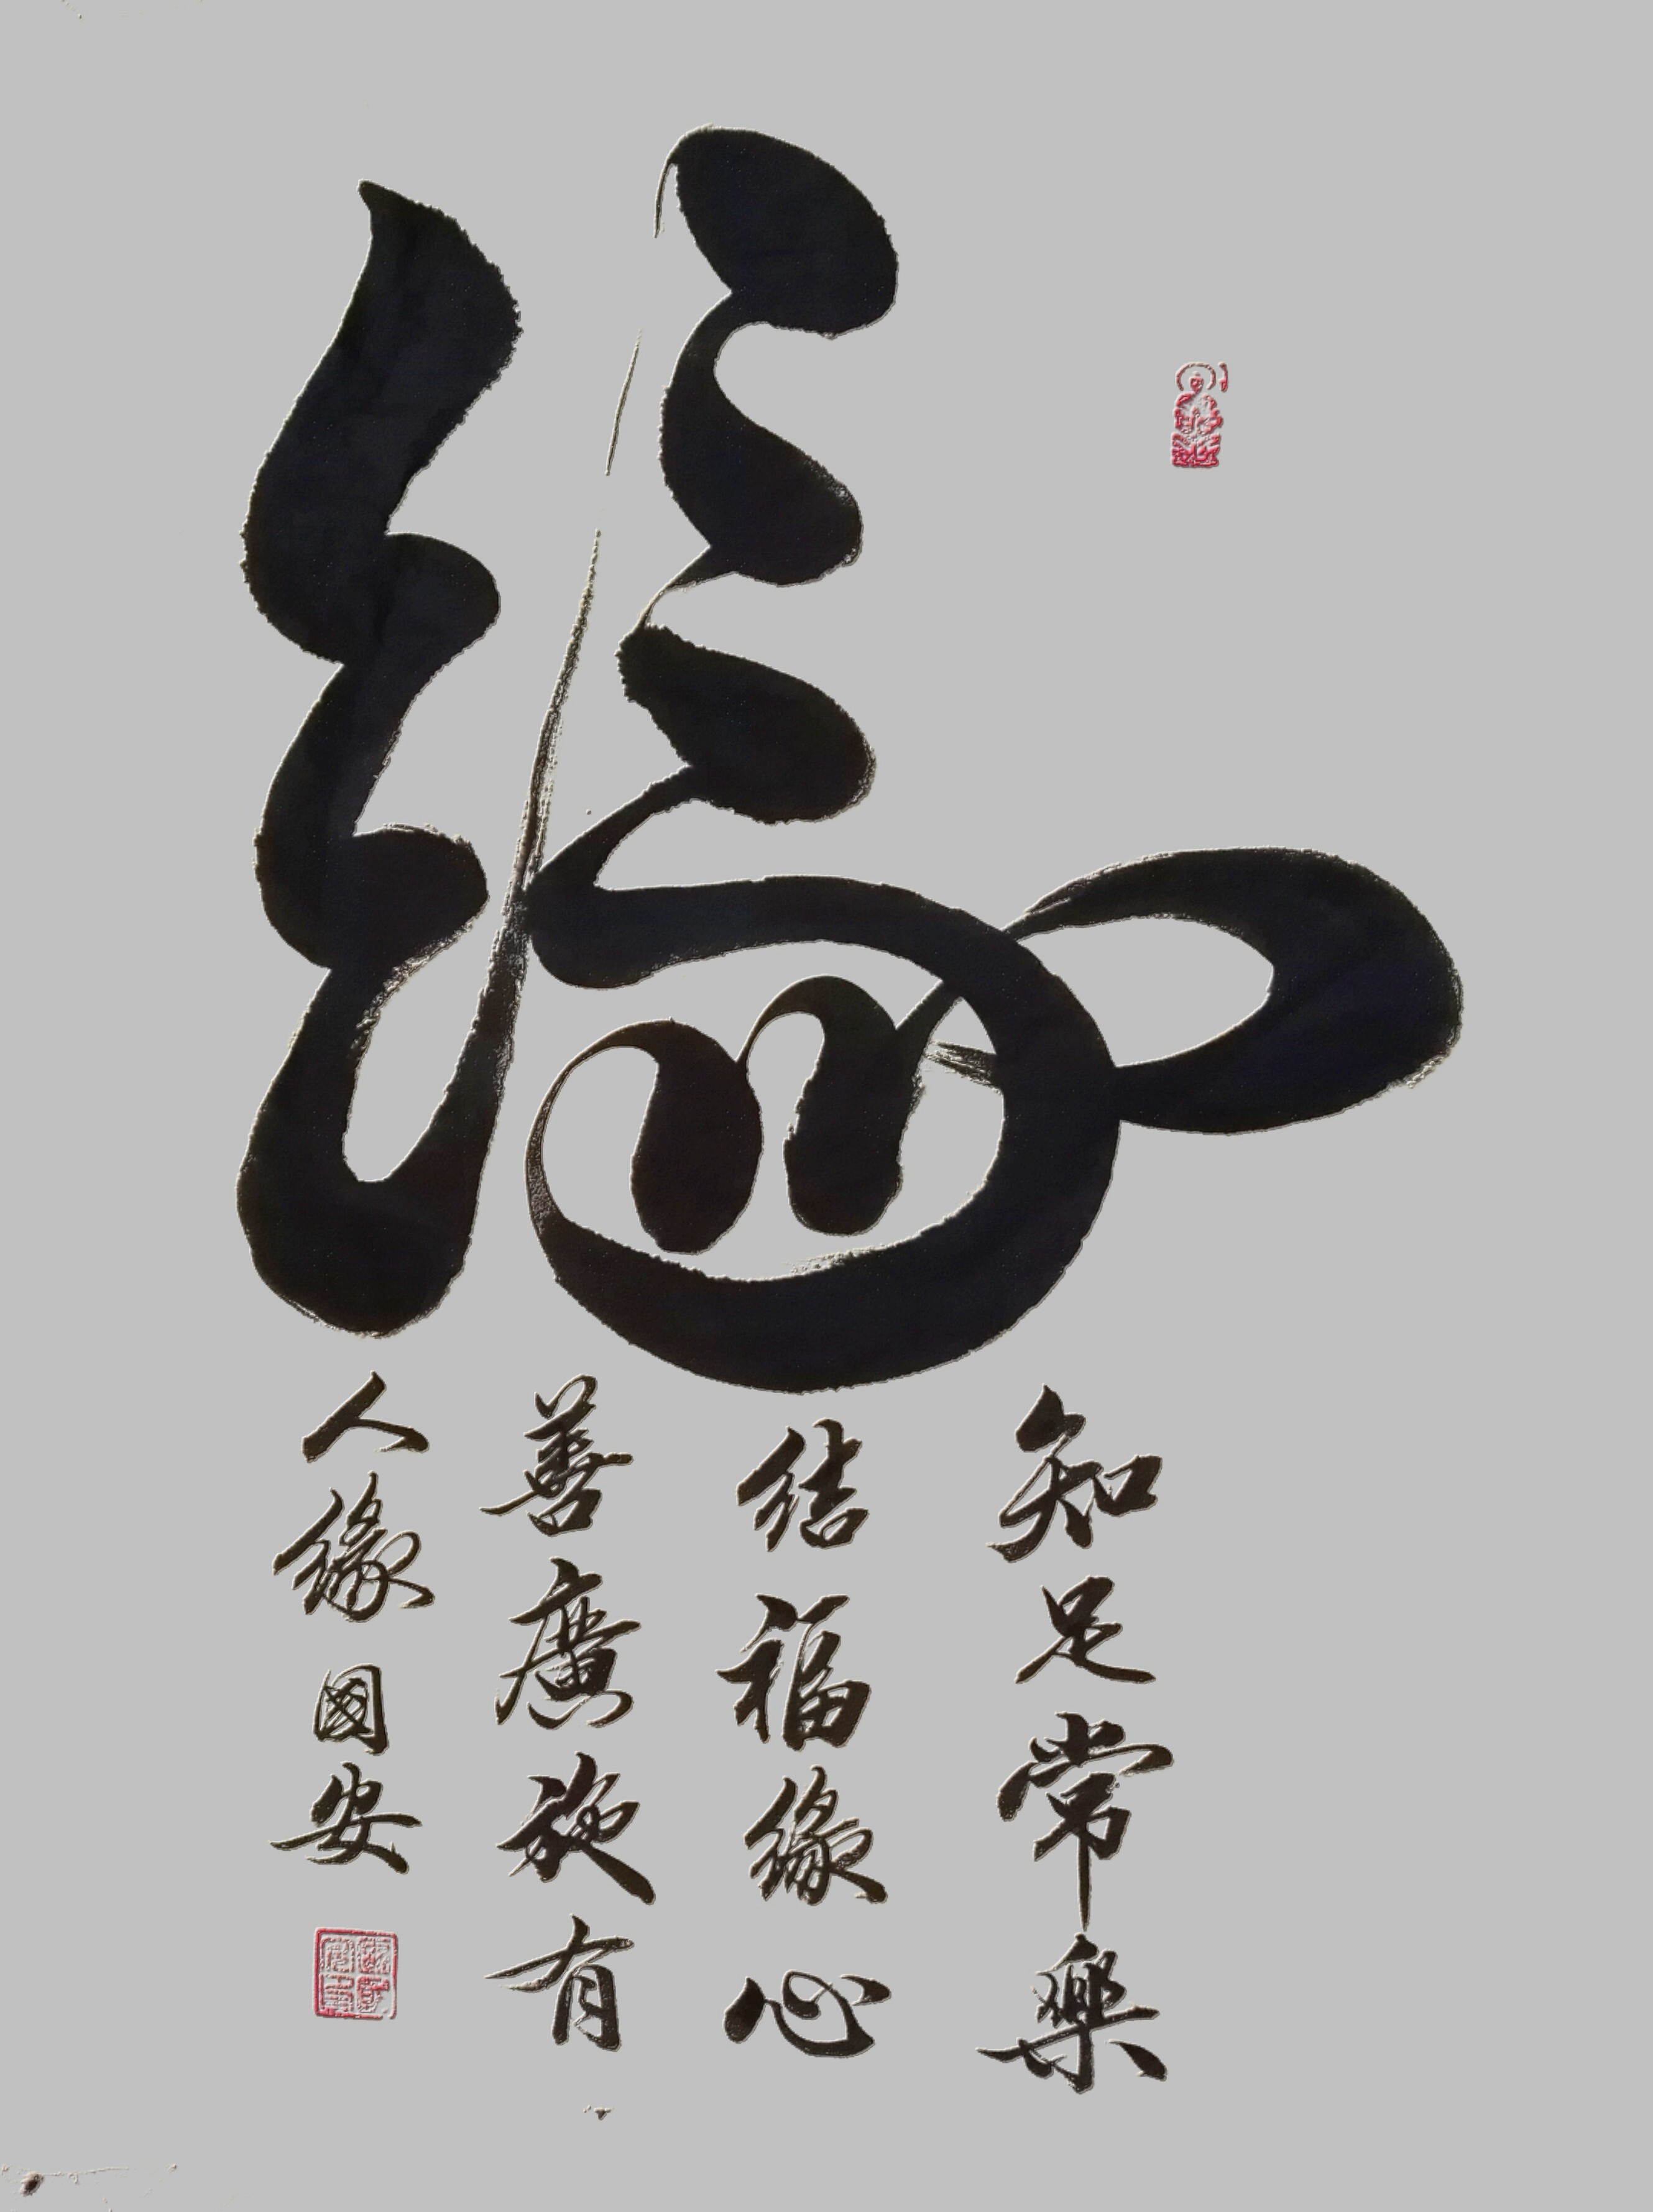 緣
知足常樂
結福緣心
善廣施有
人緣 國安